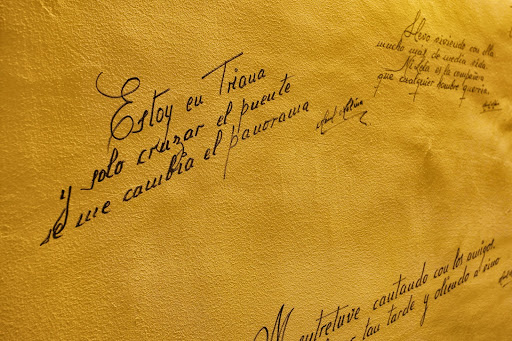 Estoy en Triana
y solo cruzar el puente
se me cambia el panorama
Llevo viviendo con ella
mucho más de media vida.
Mi Lola es la compañera
que cualquier hombre querría.
M entretuve cantando con los amigos
tan tarde y oliendo a vino